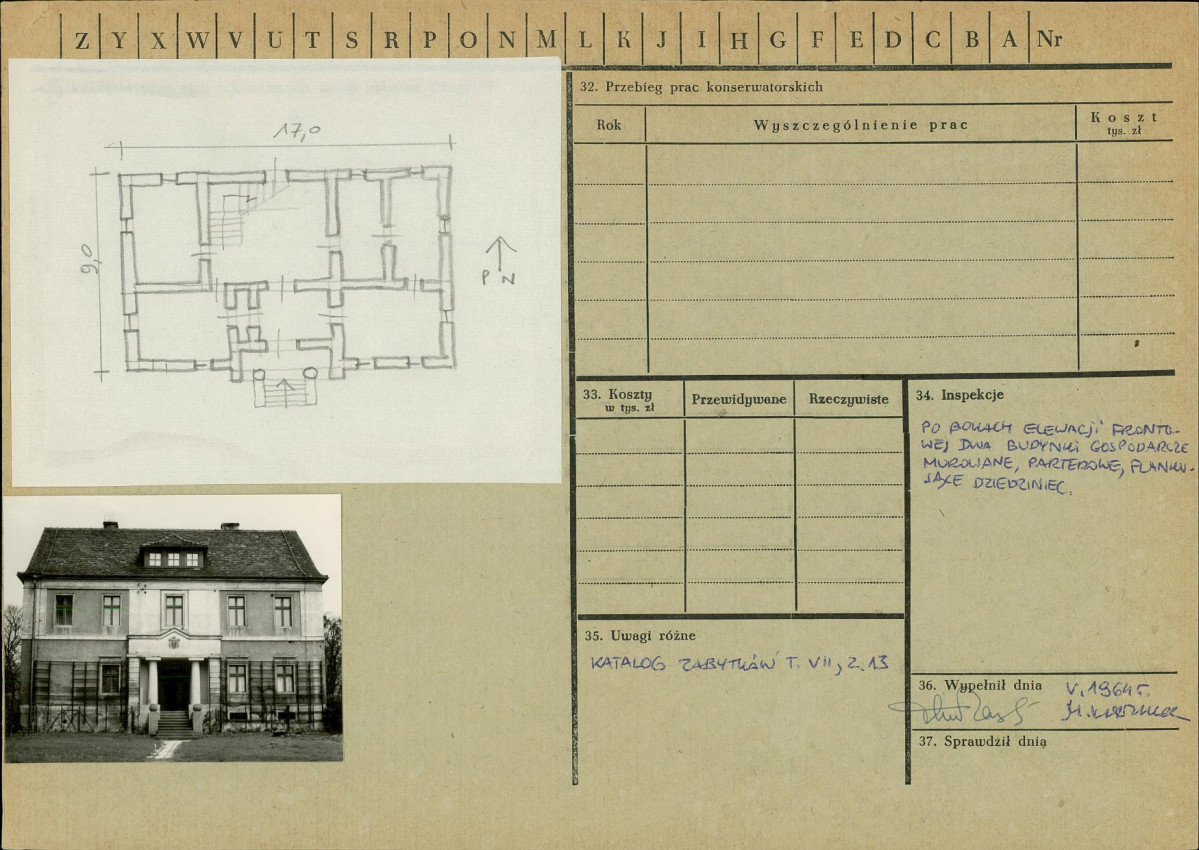 Z Y X W V U T S R P O N M L K J I H G F E D C B A Nr
17,0
9,0
P N
32. Przebieg prac konserwatorskich
Rok
Wyszczególnienie prac
Koszt
tys. zł
33. Koszty
w tys. zł
Przewidywane
Rzeczywiste
34. Inspekcje
PO BOKACH ELEWACJI FRONTO-
WEJ DWA BUDYNKI GOSPODARCZE
MUROWANE, PARTEROWE, FLANKU-
JĄCE DZIEDZINIEC.
35. Uwagi różne
KATALOG ZABYTKÓW T. VII, Z. 13
36. Wypełnił dnia
V. 1964 r.
37. Sprawdził dnia